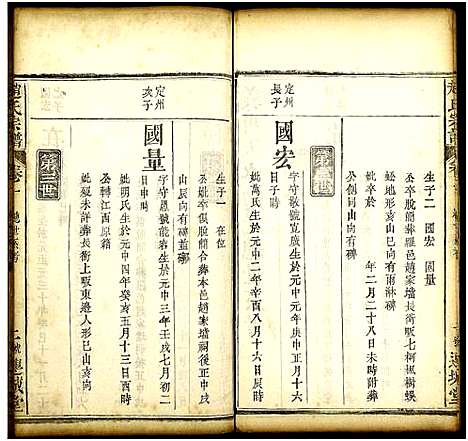 趙氏宗譜
卷
生子二 國宏 國量
公歿脫簡葬羅邑趙家壋長嶺七柯楓樹蝦
蚣地形亥山巳向有雨淋碑
妣卒於 年二月二十八未時附葬
公側同山向有碑
第三世
定州長子
國宏
字守敬號寬庶生於元中三年壬戌正月十六
日子時
妣萬氏生於元中二年辛酉八月十六日辰時
連城堂
生子一 在位
公妣卒俱脫簡合葬本邑趙家壋祠後正中戌
山辰向有碑蓋嶺
第三世
定州次子
國量
字守愚號龍岩生於元中三年壬戌七月初二
日申時
妣明氏生於元中四年癸亥五月十三日酉時
公轉江西原籍
妣歿未許葬長嶺上畈東邊人形巳山亥向
趙氏宗譜
卷一
連城堂